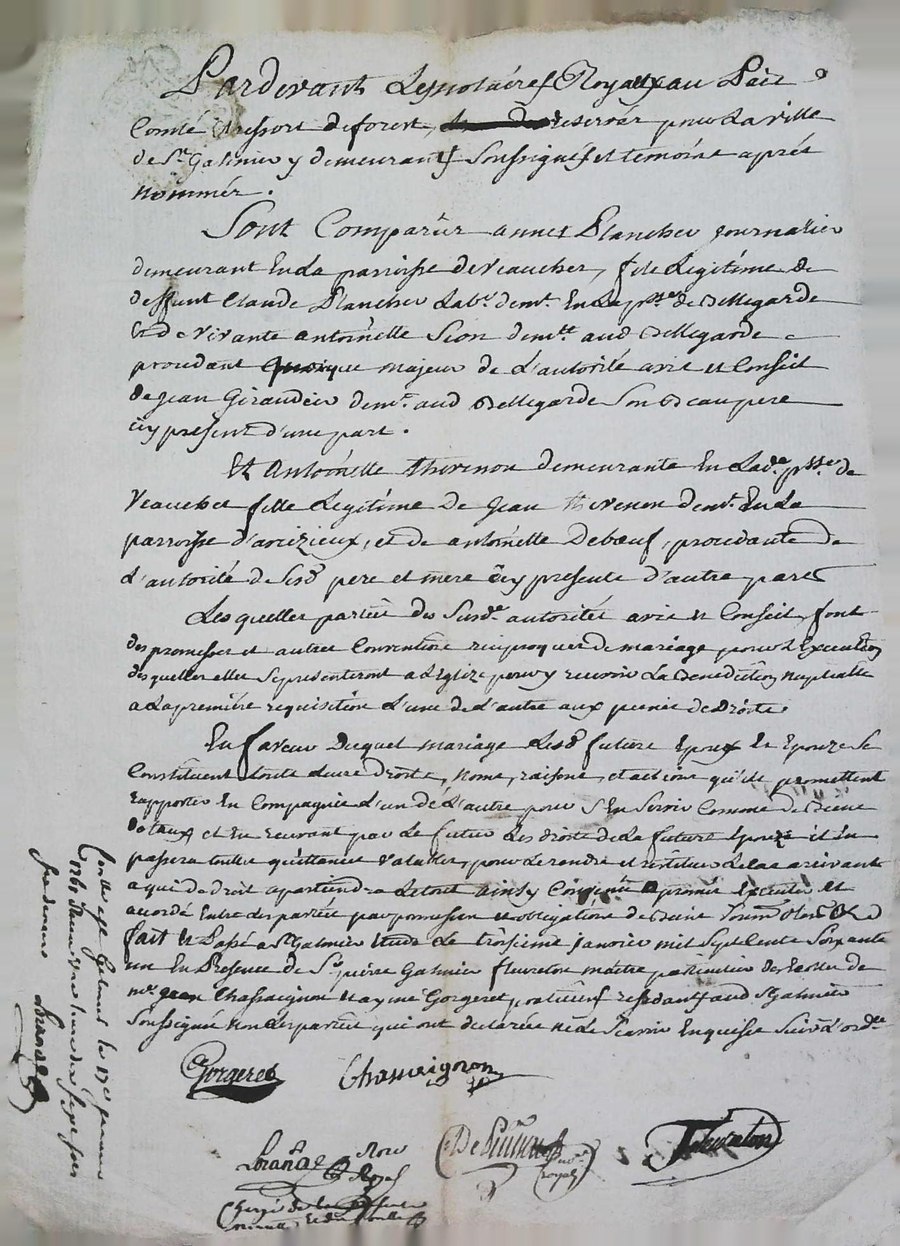 Pardevant Les notaires Royaux au Païs
Comté et ressort de forest, reservés pour La ville
de St. Galmier y demeurants soussignés et temoins aprés
nommés.
Sont Comparus annet Planchet journalier
demeurant En La parroisse de Veauches, fils Legitime de
deffunt Claude Planchet Labr. demt. En La psse. de Bellegarde
Et de Vivante antoinette Sion demtt. aud Bellegarde
procedant majeur de L'autorité avis et Conseil
de jean Giraudier demt. aud Bellegarde Son Beau pere
icy present d'une part.
Et Antoinette thevenon demeurante En Lade. psse. de
Veauches fille Legitime de Jean thevenon demt. En La
parroisse d'avizieux, et de antoinette Debœuf, procedante de
L'autorité de Sesd pere et mere icy presente d'autre part
Les quelles parties des Susde. autorités avis et Conseil, font
des promesses et autres Conventions reciproques de mariage pour L'Execution
desquelles elles Se presenteront a L'Eglize pour y recevoir La Benediction nuptialle
a La premiere requisition L'une de L'autre aux peines de Droits.
En faveur Duquel mariage Lesd futurs Epoux Et Epouze Se
Constituent touts Leurs Droits, noms, raisons, et actions qu'ils promettent
rapporter En Compagnie L'un de L'autre pour S'En Servir Comme de Biens
dotaux et En recevant par Le futur Les droits de La future Epouze il En
passera toutes quittances Valables, pour Le rendre et restituer Le Cas arrivant
a qui de droit apartiendra Le tout ainsy Convenu promis Executer et
accordé Entre Les parties par promesses et obligations de Biens
fait et Passé a St Galmier Etude Le troisieme janvier mil Sept Cents Soixante
un En Presence de Sr. pierre Galmier fleureton maitre particulier
me. jean Chassaignon et aymé Gorgeret, praticiens residants aud St Galmier
Soussignés non Les parties qui ont declarées ne Scavoir Enquises Suivt L'ordce
Gorgeret Chassaignon
Fleureton
Not Royal
royal